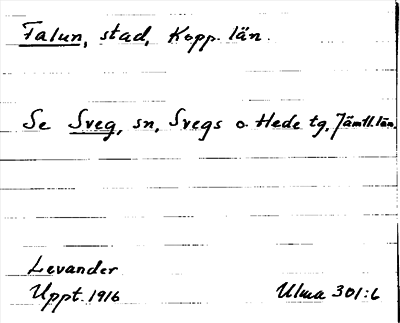 Falun, stad, Kopp. län.
Se Sveg, sn, Svegs o. Hede tg, Jämtl. län.
Levander
Uppt. 1916 Ulma 301:6